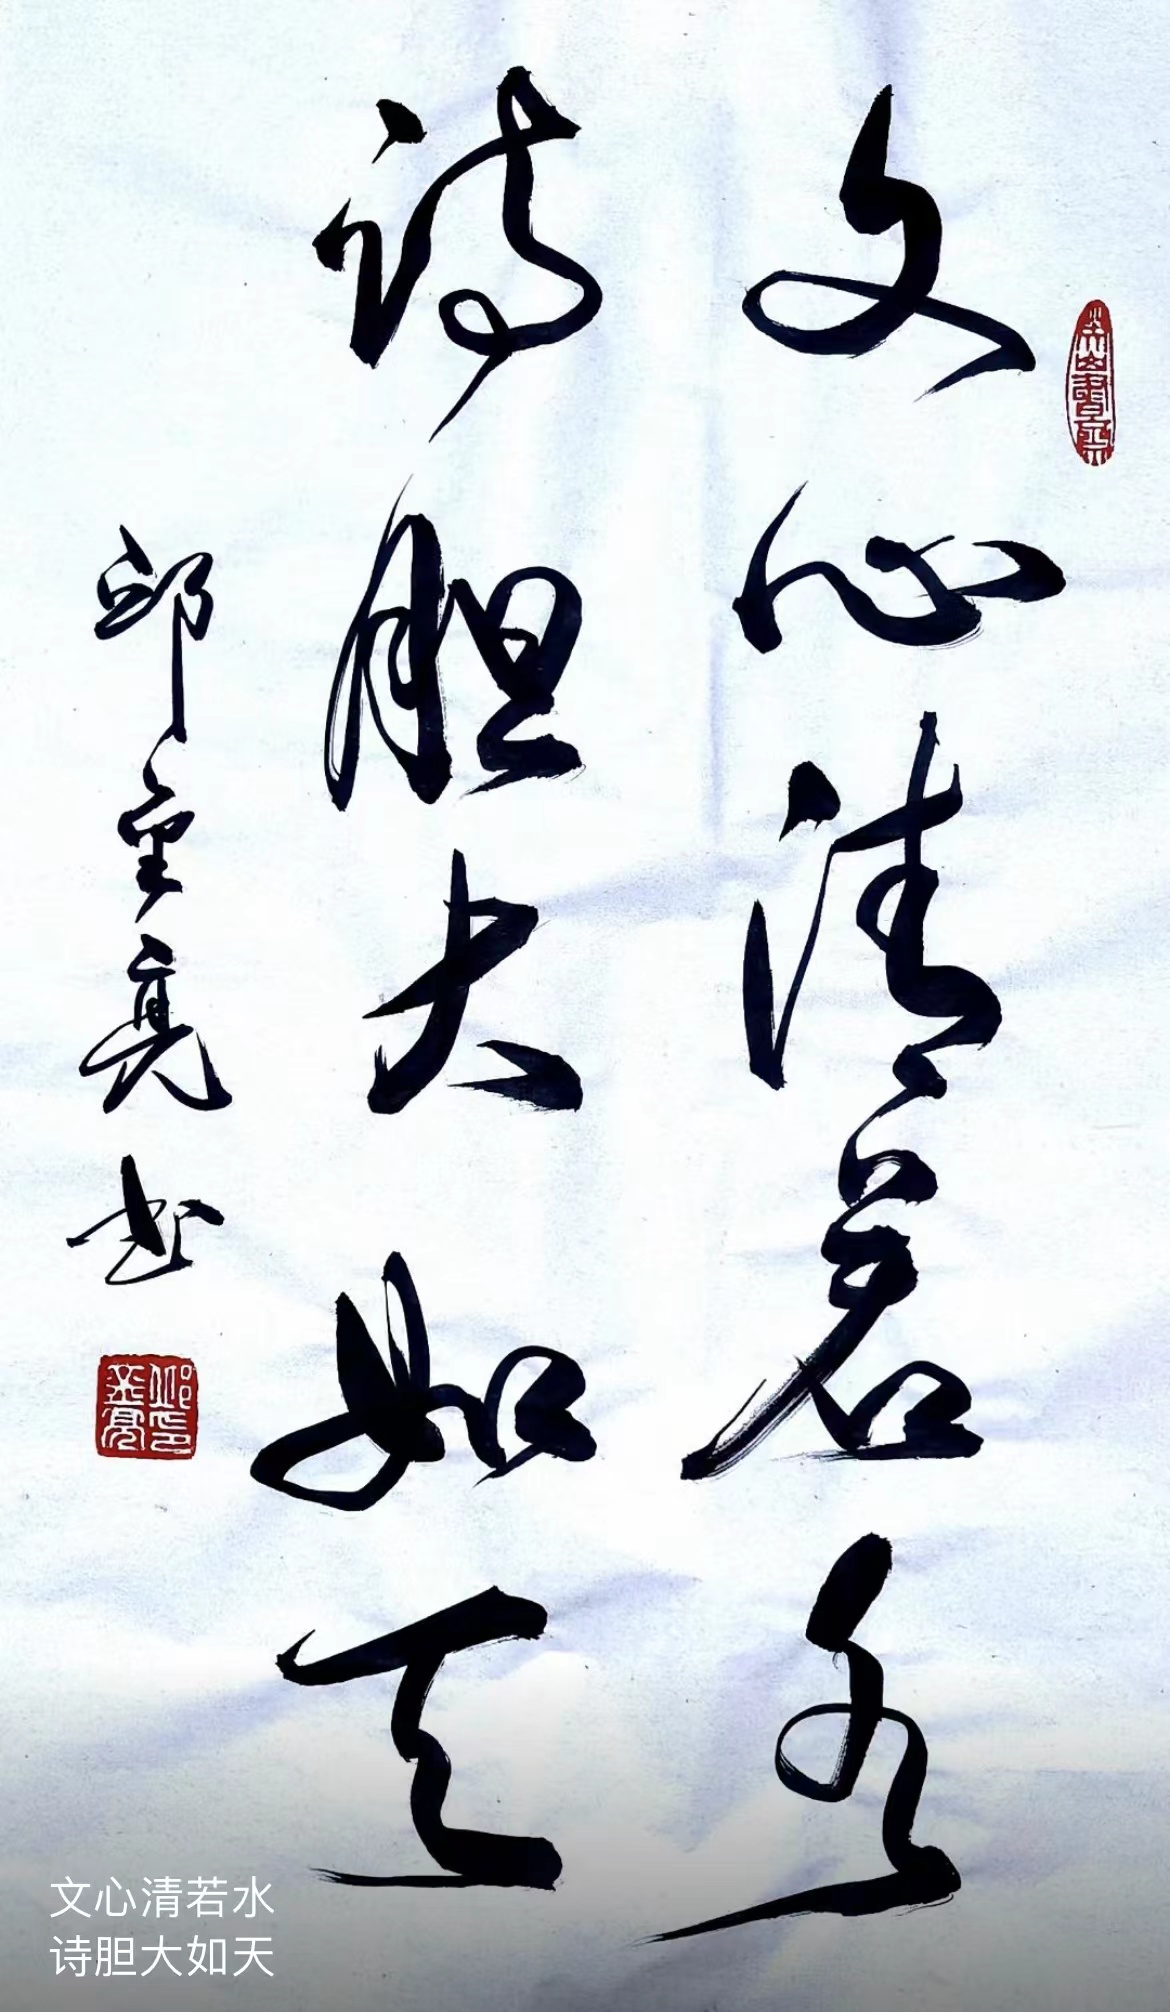 文心清若水
诗胆大如天
邱亮书
文心清若水
诗胆大如天